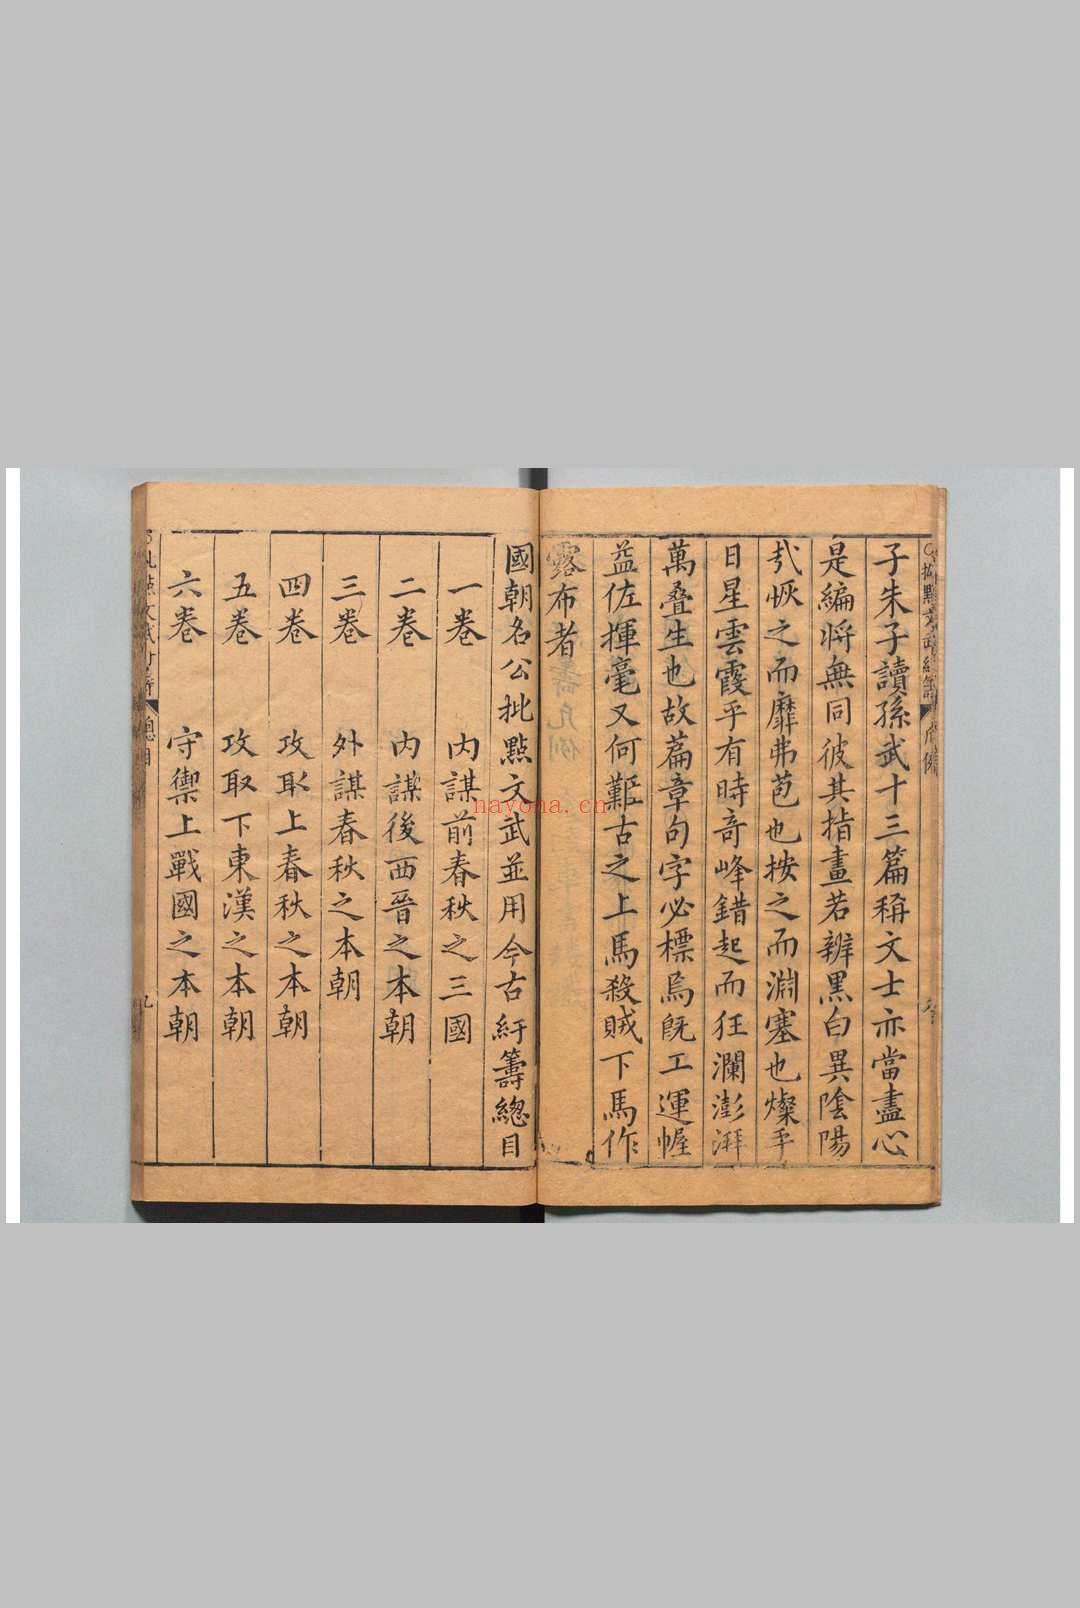 子朱子讀孫武十三篇稱文士亦當盡心
是編將無同彼其指畫若辨黑白異陰陽
弐恢之而靡弗苞也按之而淵塞也燦乎
日星雲霞乎有時奇峰錯起而狂瀾澎湃
萬叠生也故篇章句字必標烏旣工運幄
益佐揮毫又何難古之上馬殺賊下馬作
露布者
國朝名公批點文武並用今古紆籌總目
一卷 内謀前春秋之三國
二卷 内謀後西晉之本朝
三卷 外謀春秋之本朝
四卷 攻取上春秋之本朝
五卷 攻取下東漢之本朝
六卷 守禦上戰國之本朝
總目
九
nayona.cn